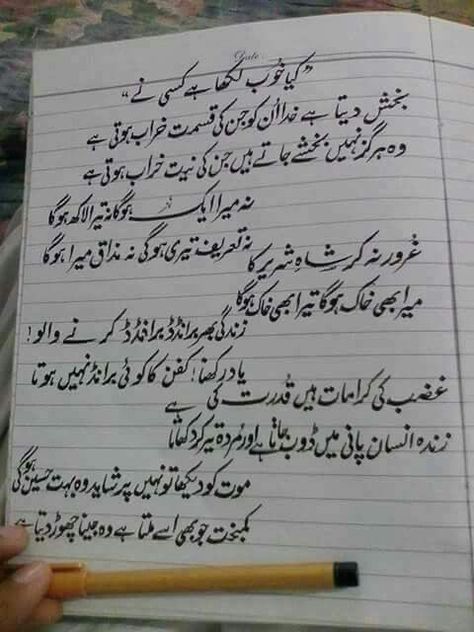 Date
"کیا خوب لکھا ہے کسی نے"
بخش دیتا ہے خدا ان کو جن کی قسمت خراب ہوتی ہے
وہ ہرگز نہیں بخشے جاتے ہیں جن کی نیت خراب ہوتی ہے
نہ میرا ایک ہوگا نہ تیرا لاکھ ہوگا
نہ تعریف تیری ہوگی نہ مذاق میرا ہوگا
غرور نہ کر شاہِ شریر کا
میرا بھی خاک ہوگا تیرا بھی خاک ہوگا
زندگی بھر برانڈڈ برانڈڈ کرنے والو!
یاد رکھنا! کفن کا کوئی برانڈ نہیں ہوتا
غضب کی کرامات ہیں قدرت کی ہے
زندہ انسان پانی میں ڈوب جاتا ہے اور مردہ تیر کر دکھاتا
موت کو دیکھا تو نہیں پر شاید وہ بہت حسین ہوگی
کمبخت جو بھی اسے ملتا ہے وہ جینا چھوڑ دیتا ہے